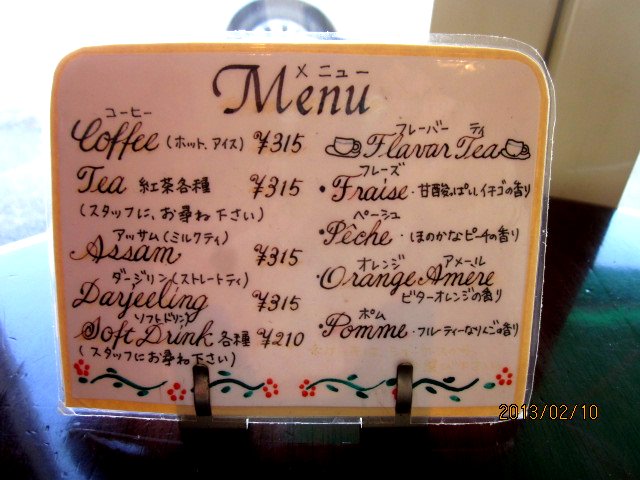 メニュー
Menu
コーヒー
Coffee (ホット、アイス) ¥315
Tea 紅茶各種 ¥315
(スタッフに、お尋ね下さい)
アッサム(ミルクティ)
Assam ¥315
ダージリン(ストレートティ)
Darjeeling ¥315
ソフトドリンク
Soft Drink 各種 ¥210
(スタッフにお尋ね下さい)
フレーバー ティ
Flavar Tea
フレーズ
・Fraise・甘酸っぱいイチゴの香り
ペーシュ
・Pêche・ほのかなピーチの香り
オレンジ アメール
・Orange Amere
ビターオレンジの香り
ポム
・Pomme・フルーティーなりんごの香り
2013/02/10